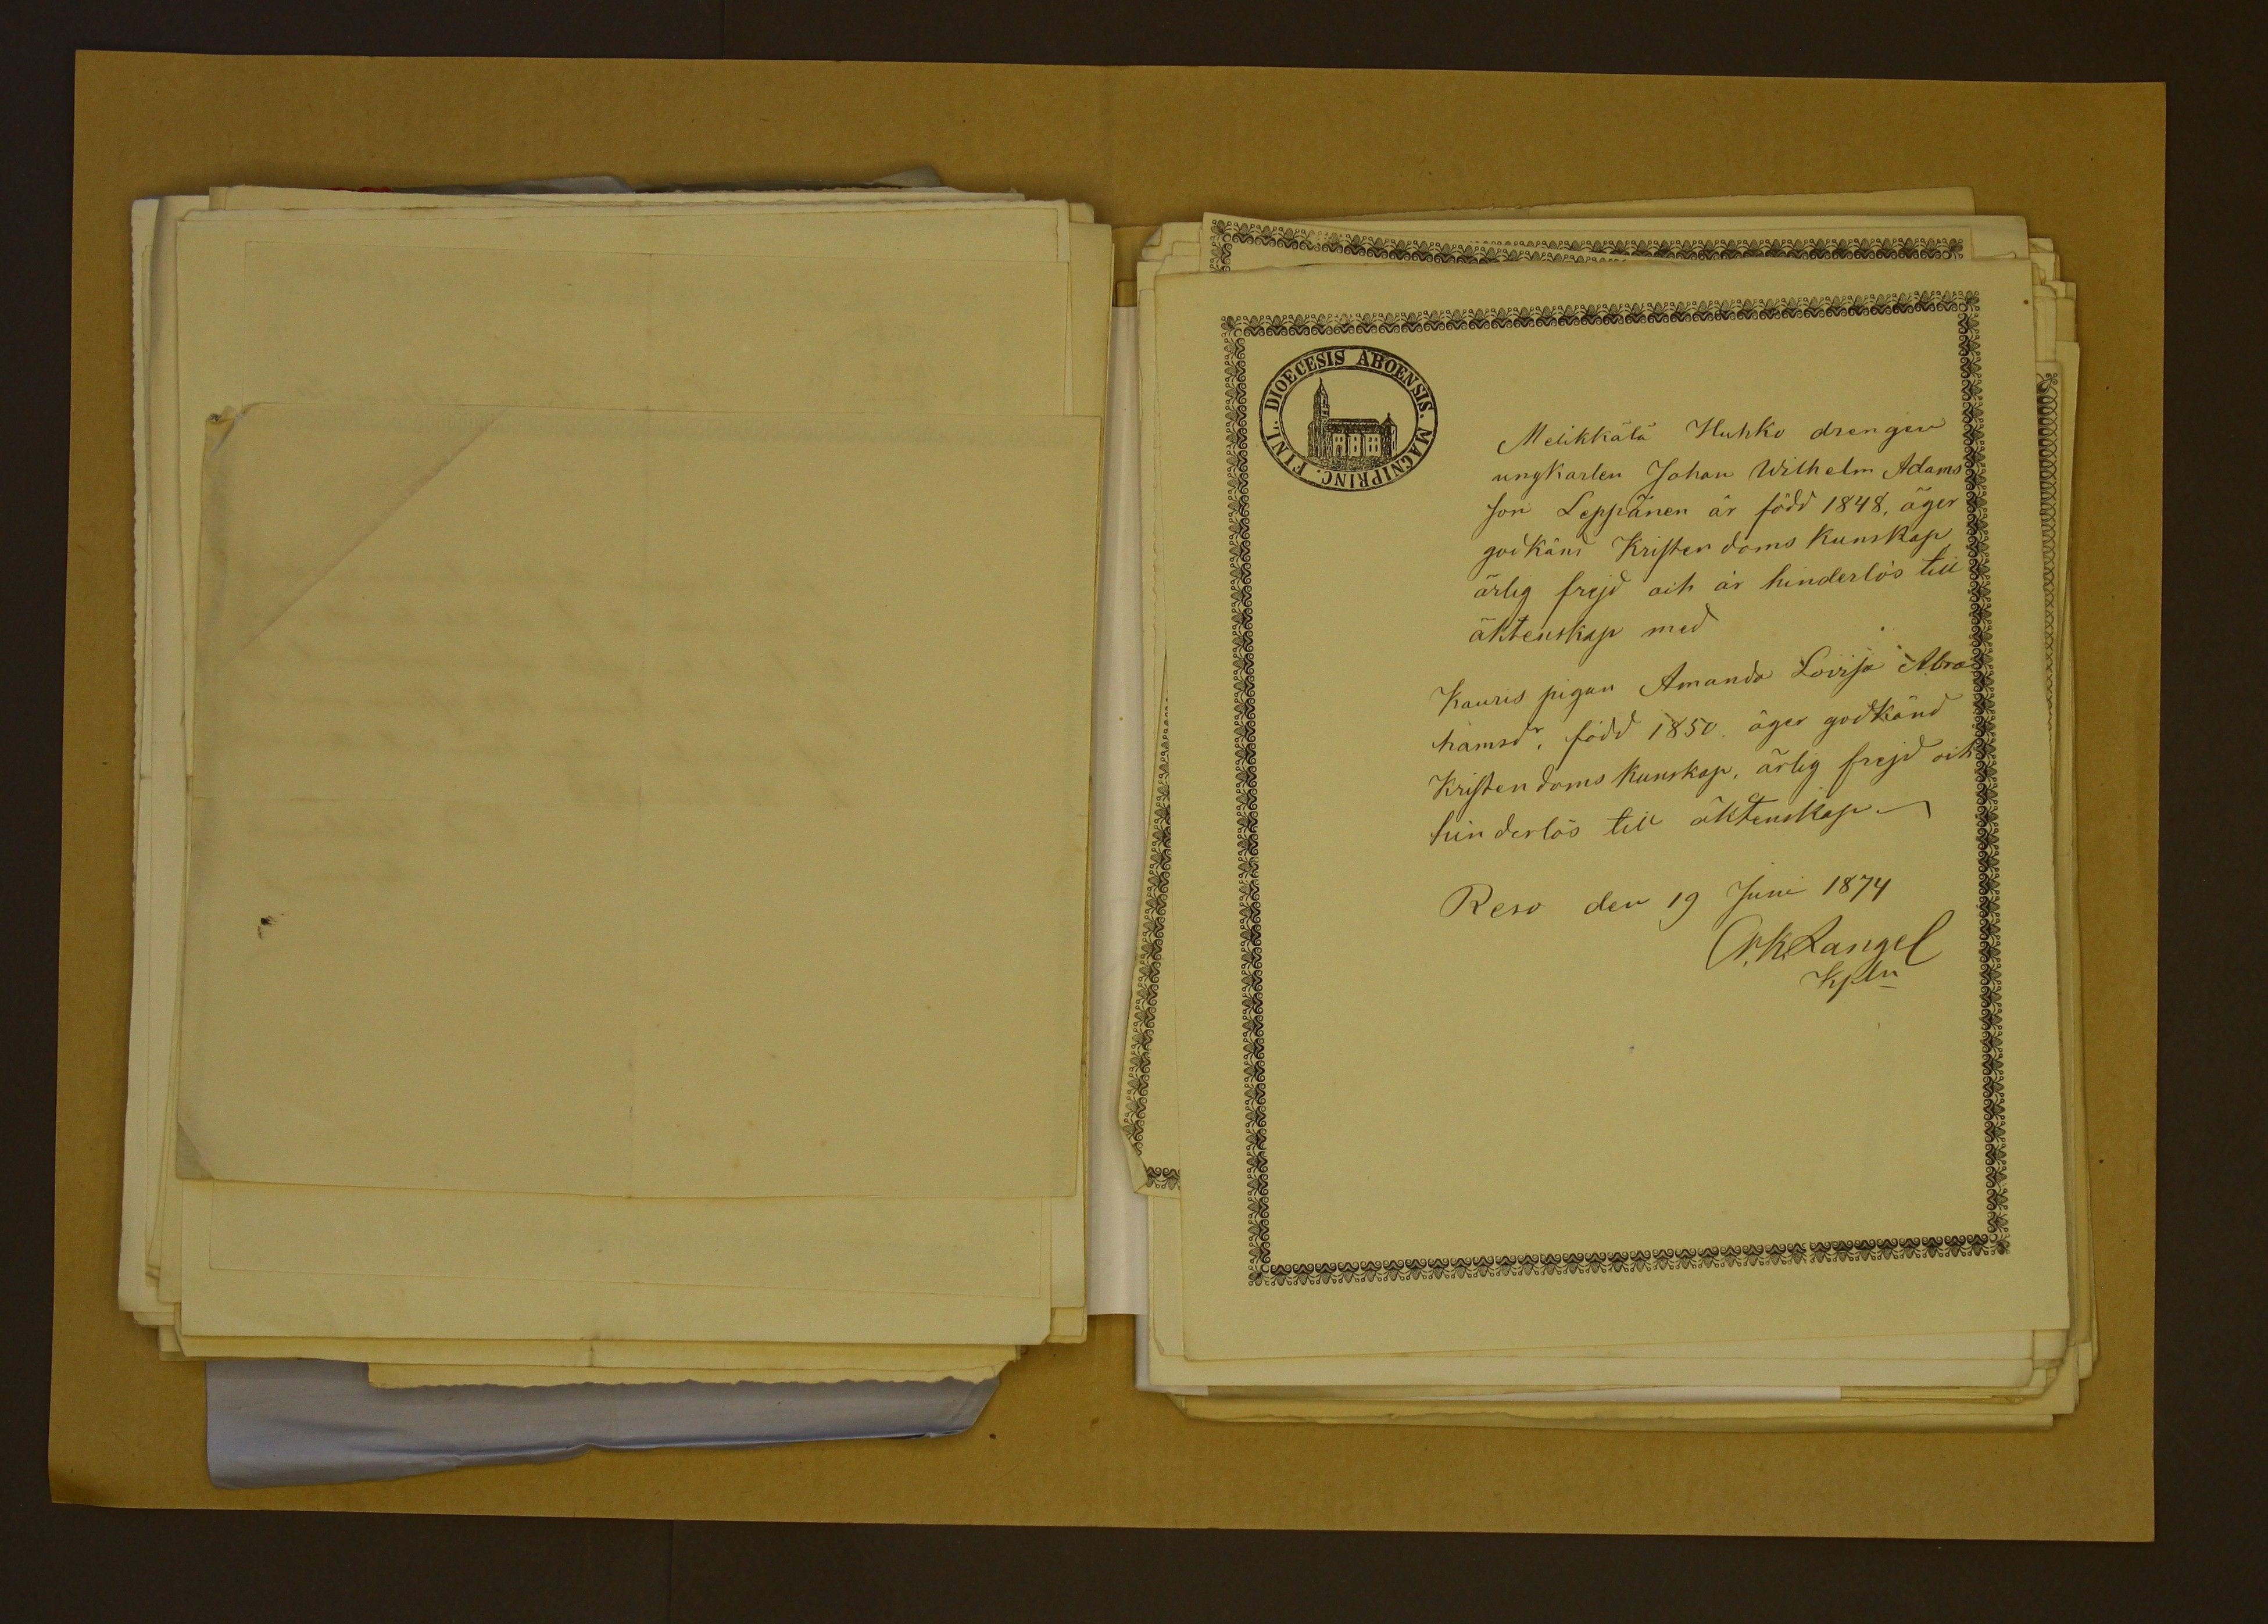 DIOECESIS ABOENSIS. MAGNIPRINC. FINL.
Melikkälä Huhko drengen
ungkarlen Johan Wilhelm Adams
son Leppänen är född 1848, äger
godkänd Kristendoms Kunskap
ärlig frejd och är hinderlös till
äktenskap med
Kauris pigan Amanda Lovisa Abra
hamsdr, född 1850. äger godkänd
Kristendoms Kunskap, ärlig frejd och
hinderlös till äktenskap.
Reso den 19 Juni 1874
K. Langel
Kpln